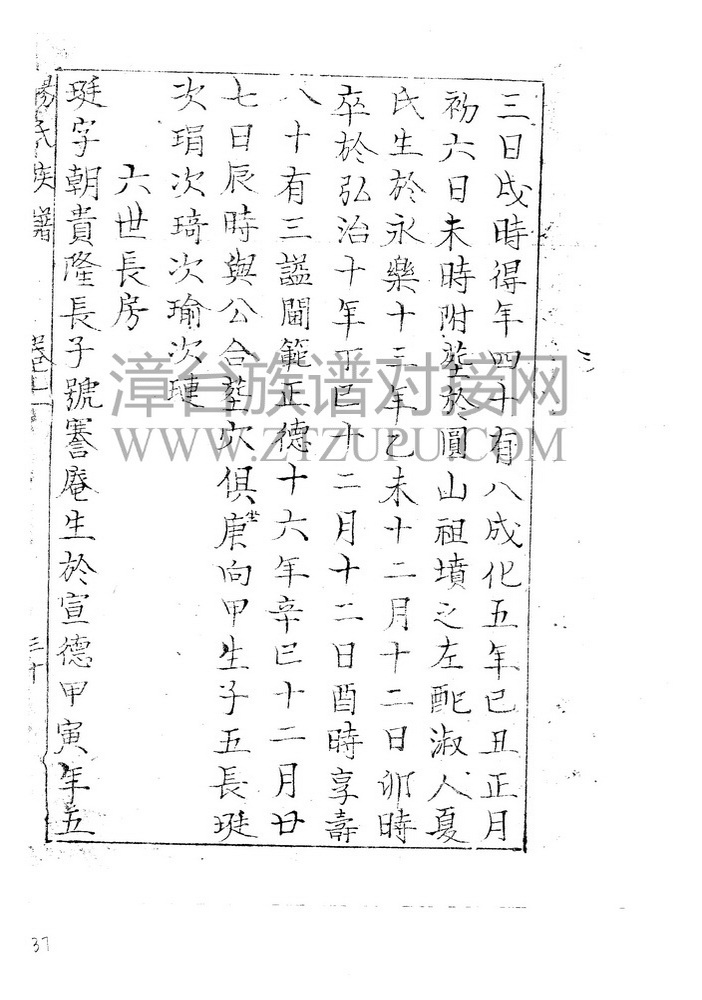 三日戌時得年四十有八成化五年己丑正月
初六日未時附塟於圓山祖墳之左配淑人夏
氏生於永樂十三年乙未十二月十二日卯時
卒於弘治十年丁巳十二月十二日酉時享壽
八十有三謚閫範正德十六年辛巳十二月廿
七日辰時與公合塟穴俱坐庚向甲生子五長珽
次琄次琦次瑜次璉
六世長房
珽字朝貴隆長子號謇庵生於宣德甲寅年五
楊氏族譜 卷之一 三十
漳台族谱对接网
WWW.ZTZUPU.COM
37